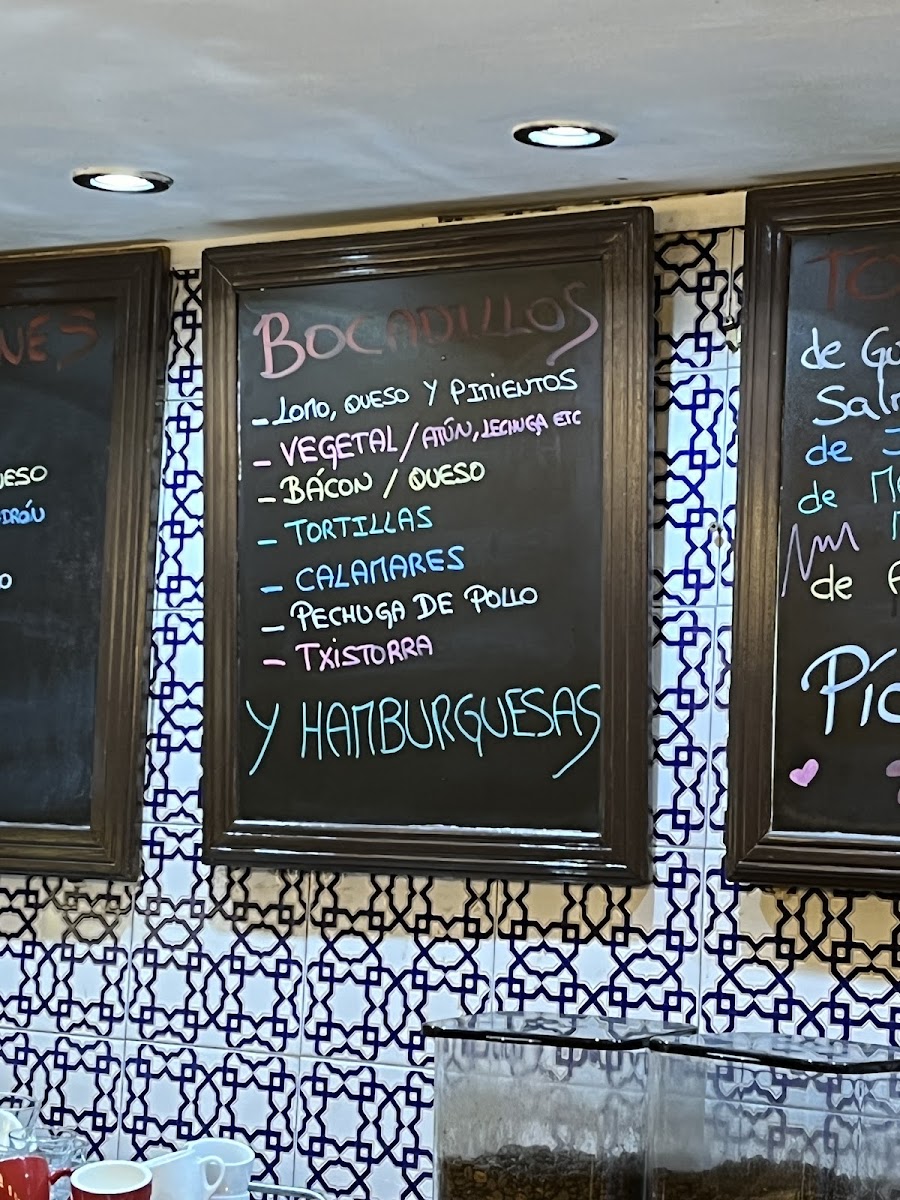 BOCADILLOS
- LOMO, QUESO Y PIMIENTOS
- VEGETAL / ATÚN, LECHUGA ETC
- BÁCON / QUESO
- TORTILLAS
- CALAMARES
- PECHUGA DE POLLO
- TXISTORRA
Y HAMBURGUESAS
de
de
de
de